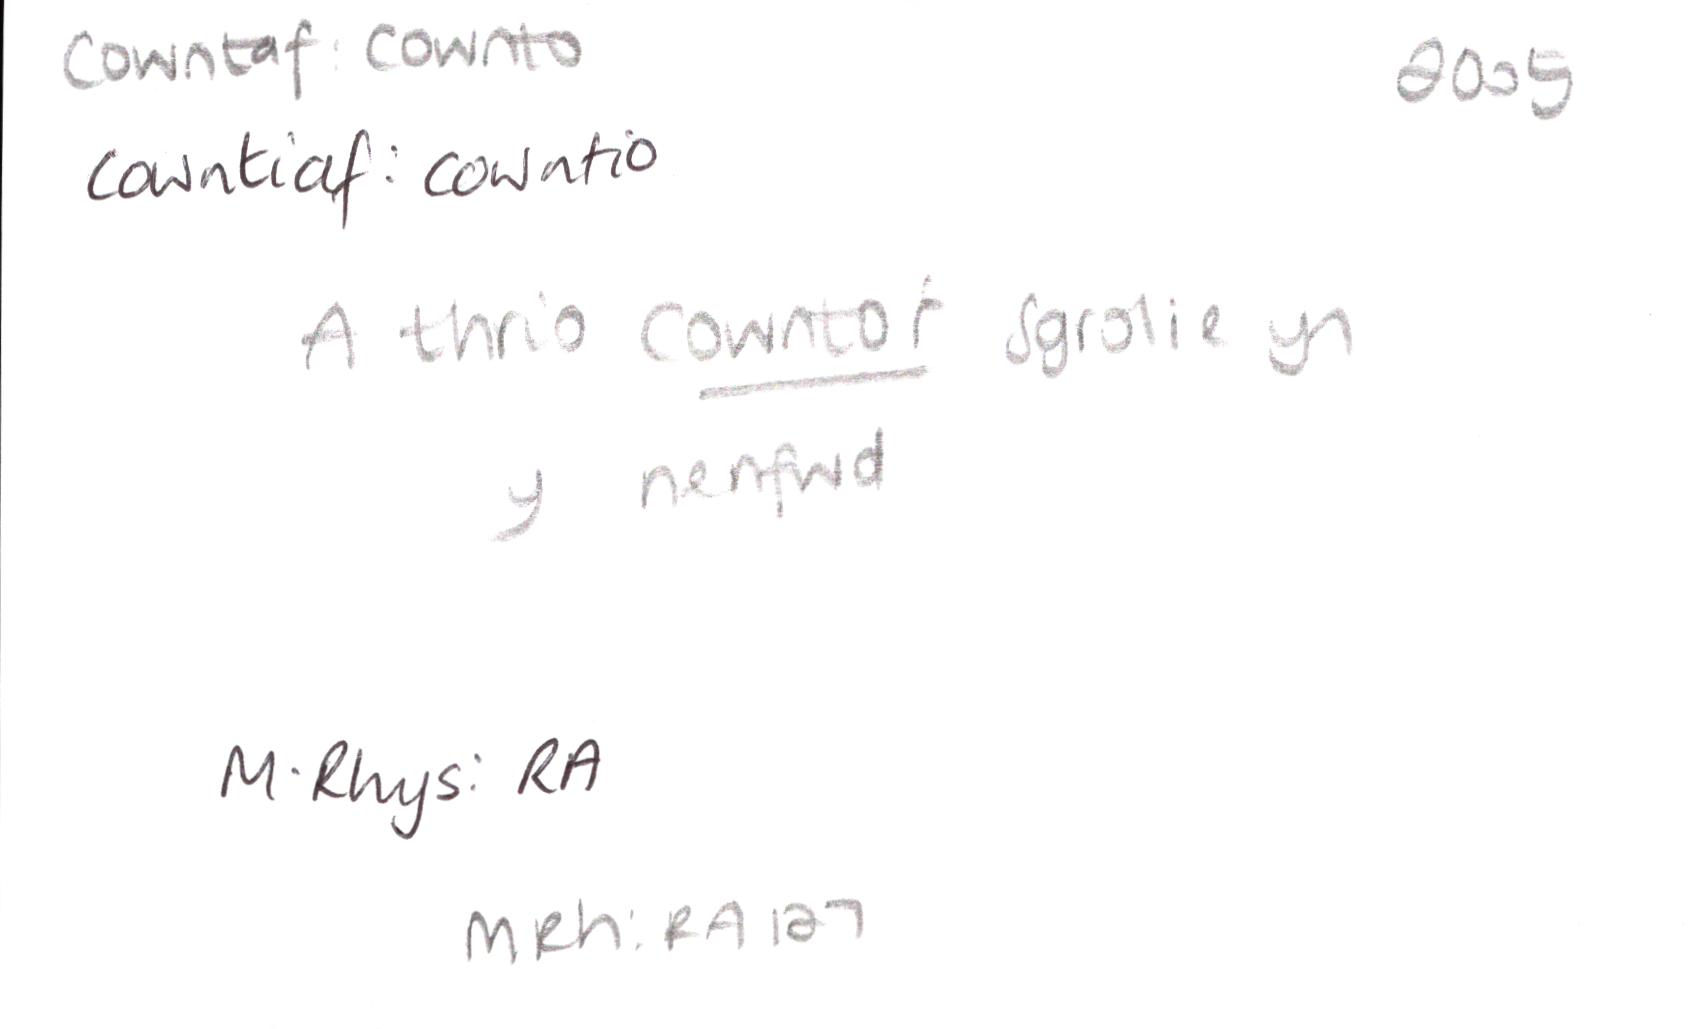 Cowntaf: Cownto 2005
Cowntiaf: cowntio
A thrio cownto'r sgrolie yn
y nenfwd
M. Rhys: RA
MRh: RA 127